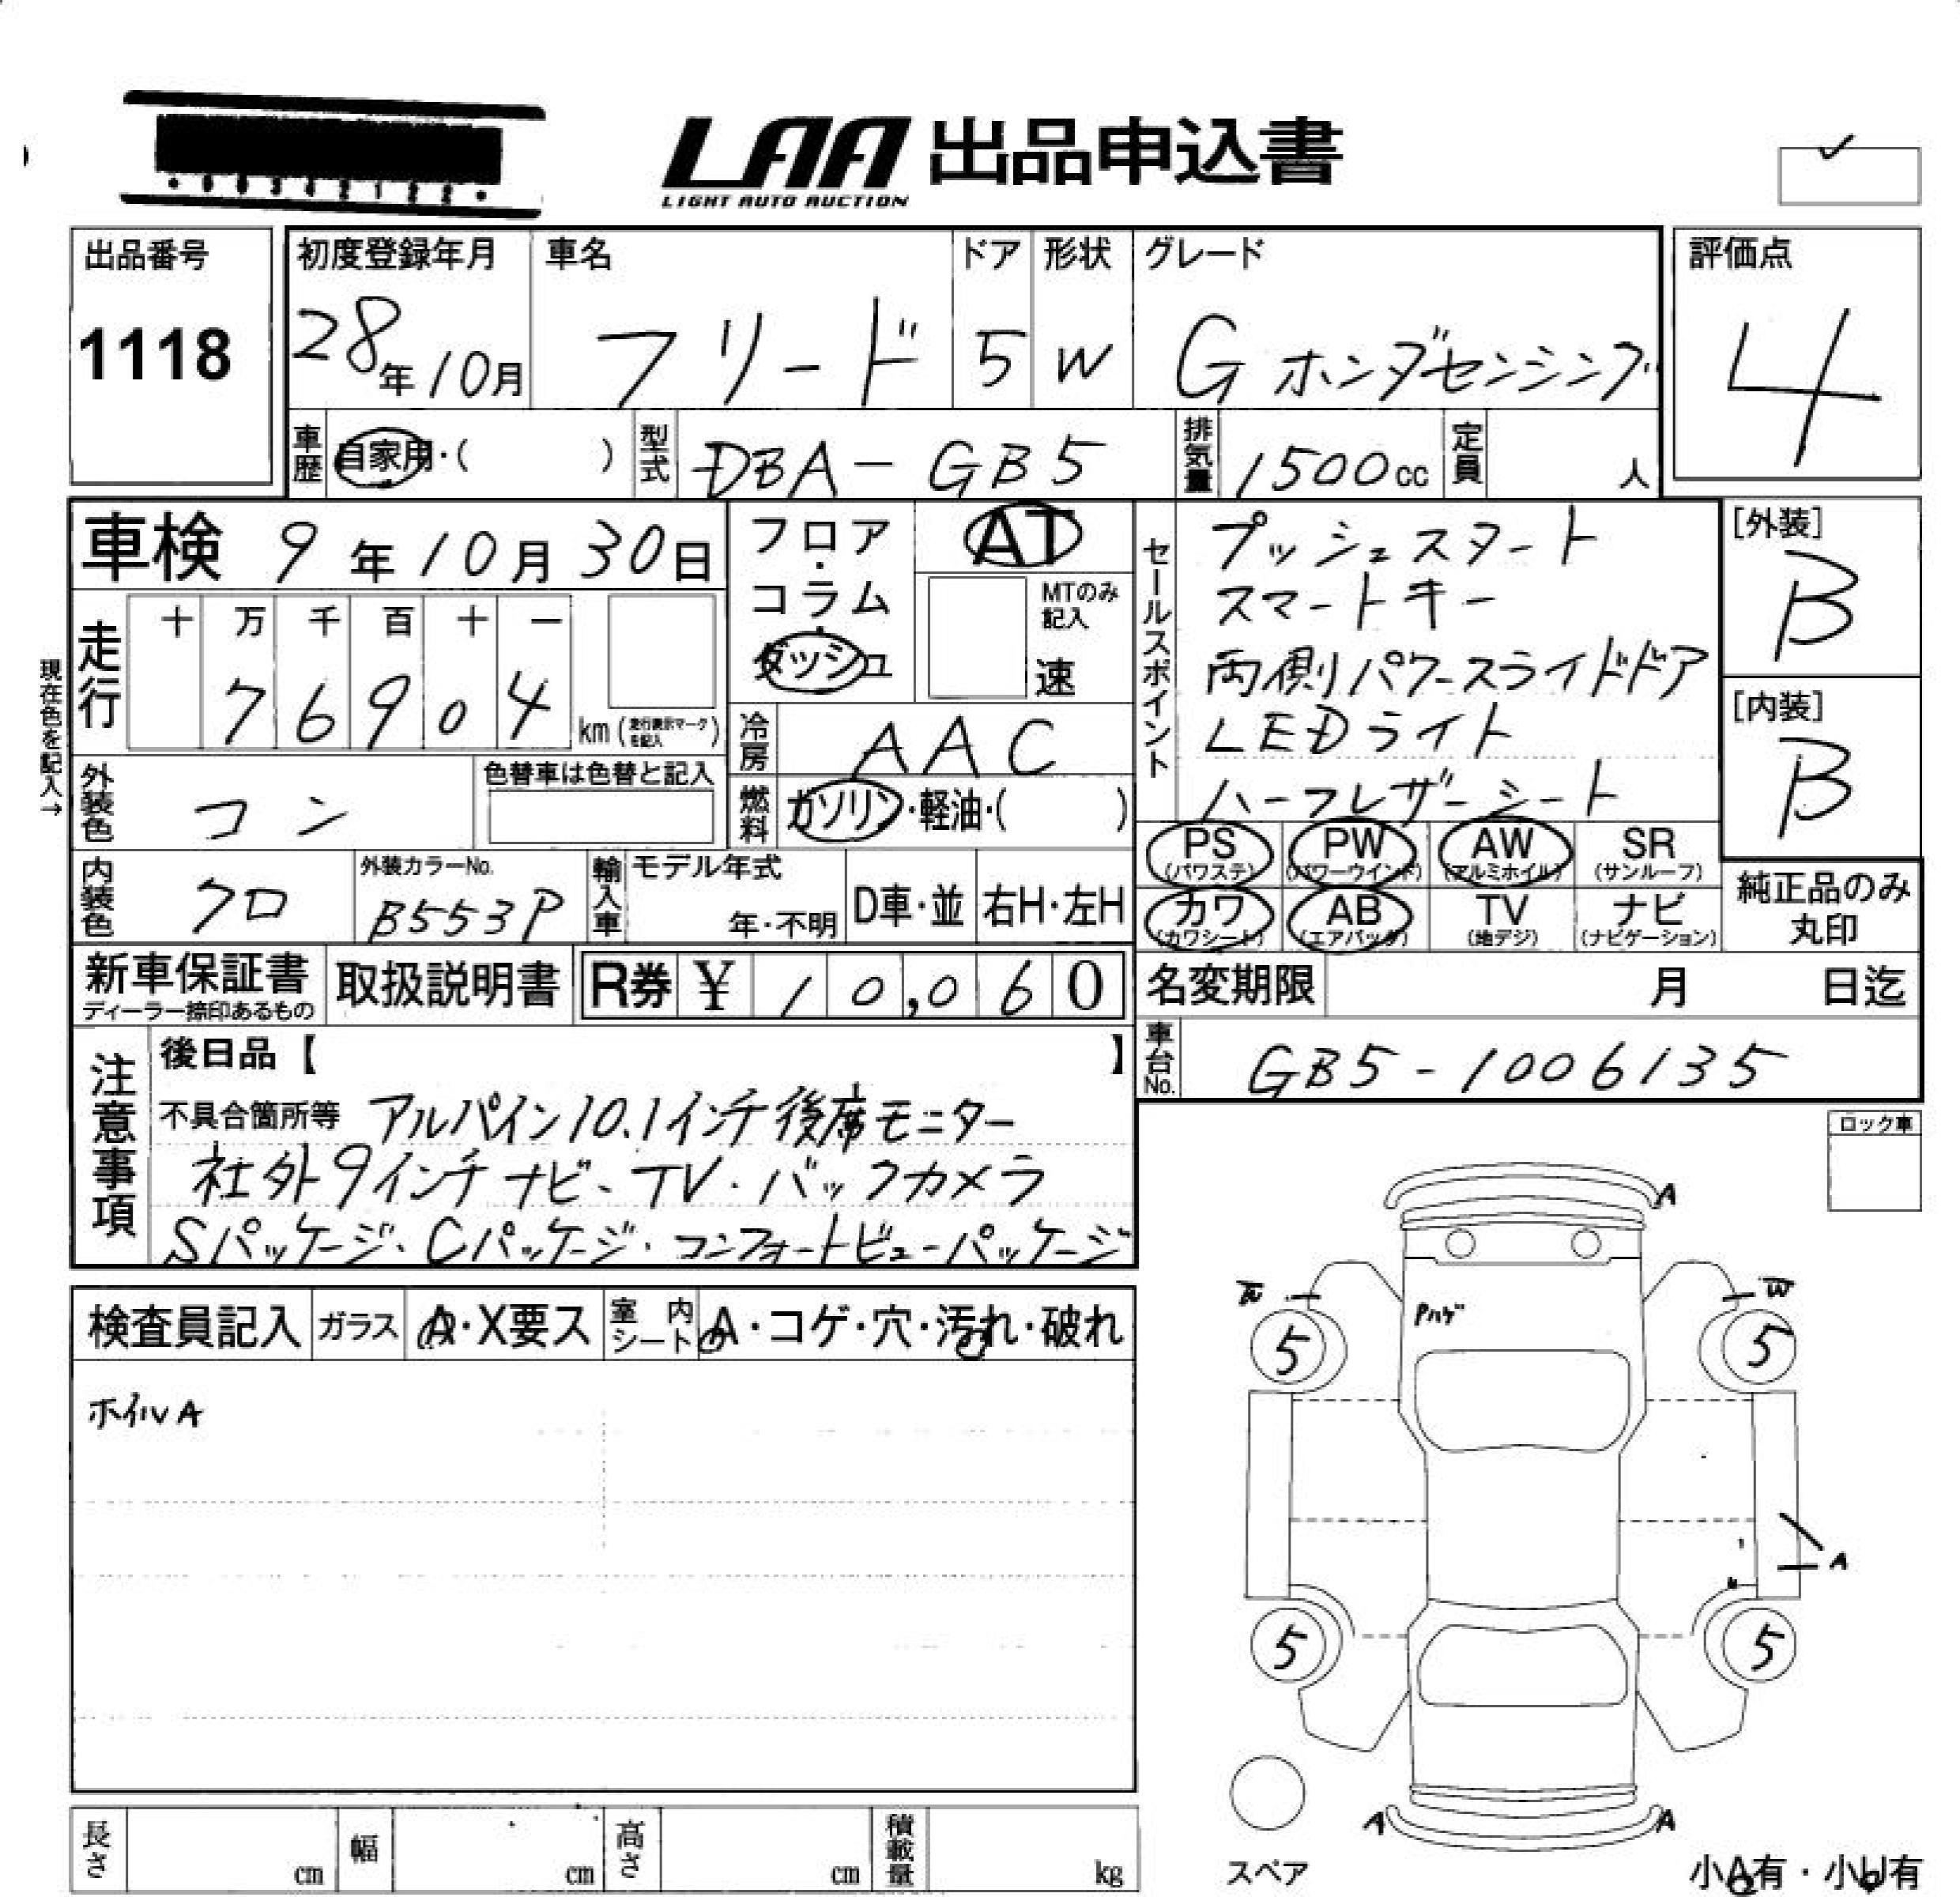 LAA 出品申込書
LIGHT AUTO AUCTION
出品番号
1118
初度登録年月
28年10月
車名
フリード
ドア
5
形状
W
グレード
G ホンダセンシング
評価点
4
車歴
自家用・( )
型式
DBA-GB5
排気量
1500cc
定員
人
車検 9年10月30日
フロア・コラム・ダッシュ
AT
MTのみ記入
速
セールスポイント
プッシュスタート
スマートキー
両側パワースライドドア
LEDライト
ハーフレザーシート
[外装]
B
[内装]
B
現在色を記入→
走行
十 万 千 百 十 一
7 6 9 0 4
km(走行表示マークを記入)
冷房
AAC
外装色
コン
色替車は色替と記入
燃料
ガソリン・軽油・( )
PS (パワステ)
PW (パワーウインド)
AW (アルミホイル)
SR (サンルーフ)
カワ (カワシート)
AB (エアバック)
TV (地デジ)
ナビ (ナビゲーション)
純正品のみ丸印
内装色
クロ
外装カラーNo.
B553P
輸入車
モデル年式
年・不明
D車・並
右H・左H
新車保証書
ディーラー捺印あるもの
取扱説明書
R券 ¥ 10,060
名変期限
月 日迄
車台No.
GB5-1006135
注意事項
後日品【 】
不具合箇所等 アルパイン10.1インチ後席モニター
社外9インチナビ・TV・バックカメラ
Sパッケージ・Cパッケージ・コンフォートビューパッケージ
ロック車
検査員記入
ガラス
A・X要ス
室内シート
A・コゲ・穴・汚れ・破れ
ホイルA
A
W
W
Pハゲ
5
5
A
5
5
A
A
スペア
小A有・小U有
長さ
cm
幅
cm
高さ
cm
積載量
kg